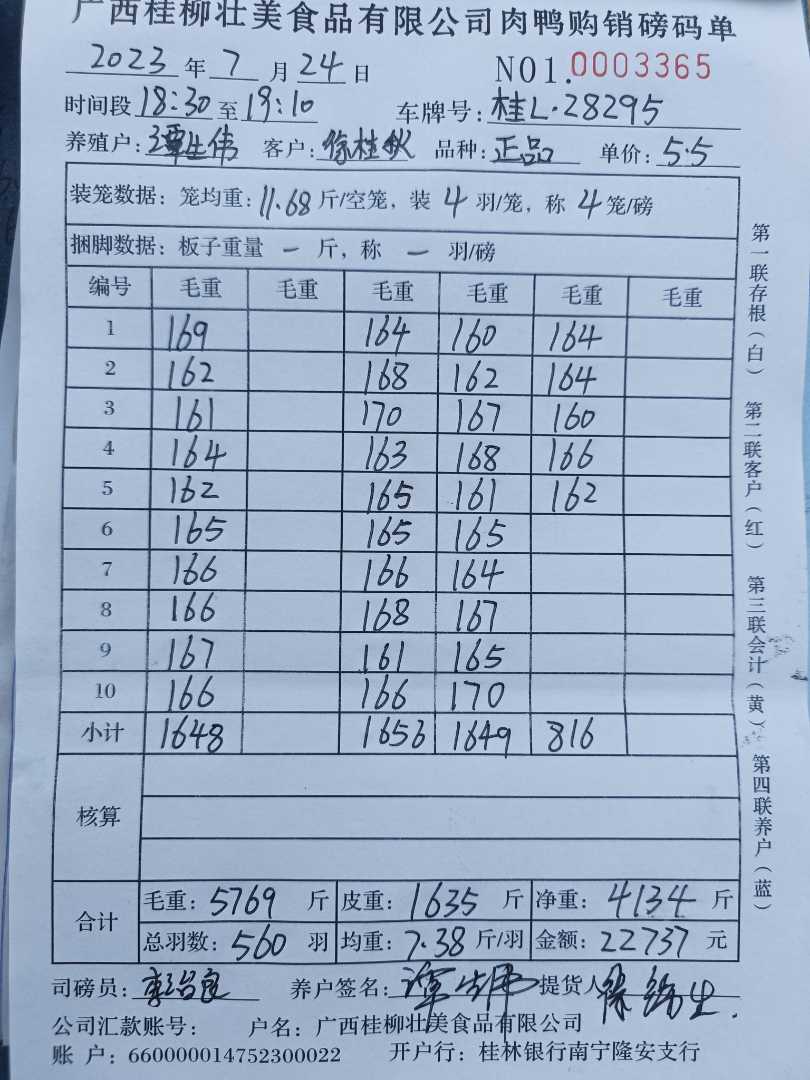 广西桂柳壮美食品有限公司肉鸭购销磅码单
2023年7月24日 NO1.0003365
时间段18:30至19:10 车牌号:桂L·28295
养殖户:谭生伟 客户:徐桂秋 品种:正品 单价:5.5
装笼数据:笼均重:11.68斤/空笼,装4羽/笼,称4笼/磅
捆脚数据:板子重量 一 斤,称 一 羽/磅
编号 毛重 毛重 毛重 毛重 毛重 毛重
1 169 164 160 164
2 162 168 162 164
3 161 170 167 160
4 164 163 168 166
5 162 165 161 162
6 165 165 165
7 166 166 164
8 166 168 167
9 167 161 165
10 166 166 170
小计 1648 1656 1649 816
核算
合计 毛重:5769斤 皮重:1635斤 净重:4134斤
总羽数:560羽 均重:7.38斤/羽 金额:22737元
司磅员: 养户签名:谭生伟 提货人
公司汇款账号: 户名:广西桂柳壮美食品有限公司
账 户:660000014752300022 开户行:桂林银行南宁隆安支行
第一联存根(白) 第二联客户(红) 第三联会计(黄) 第四联养户(蓝)